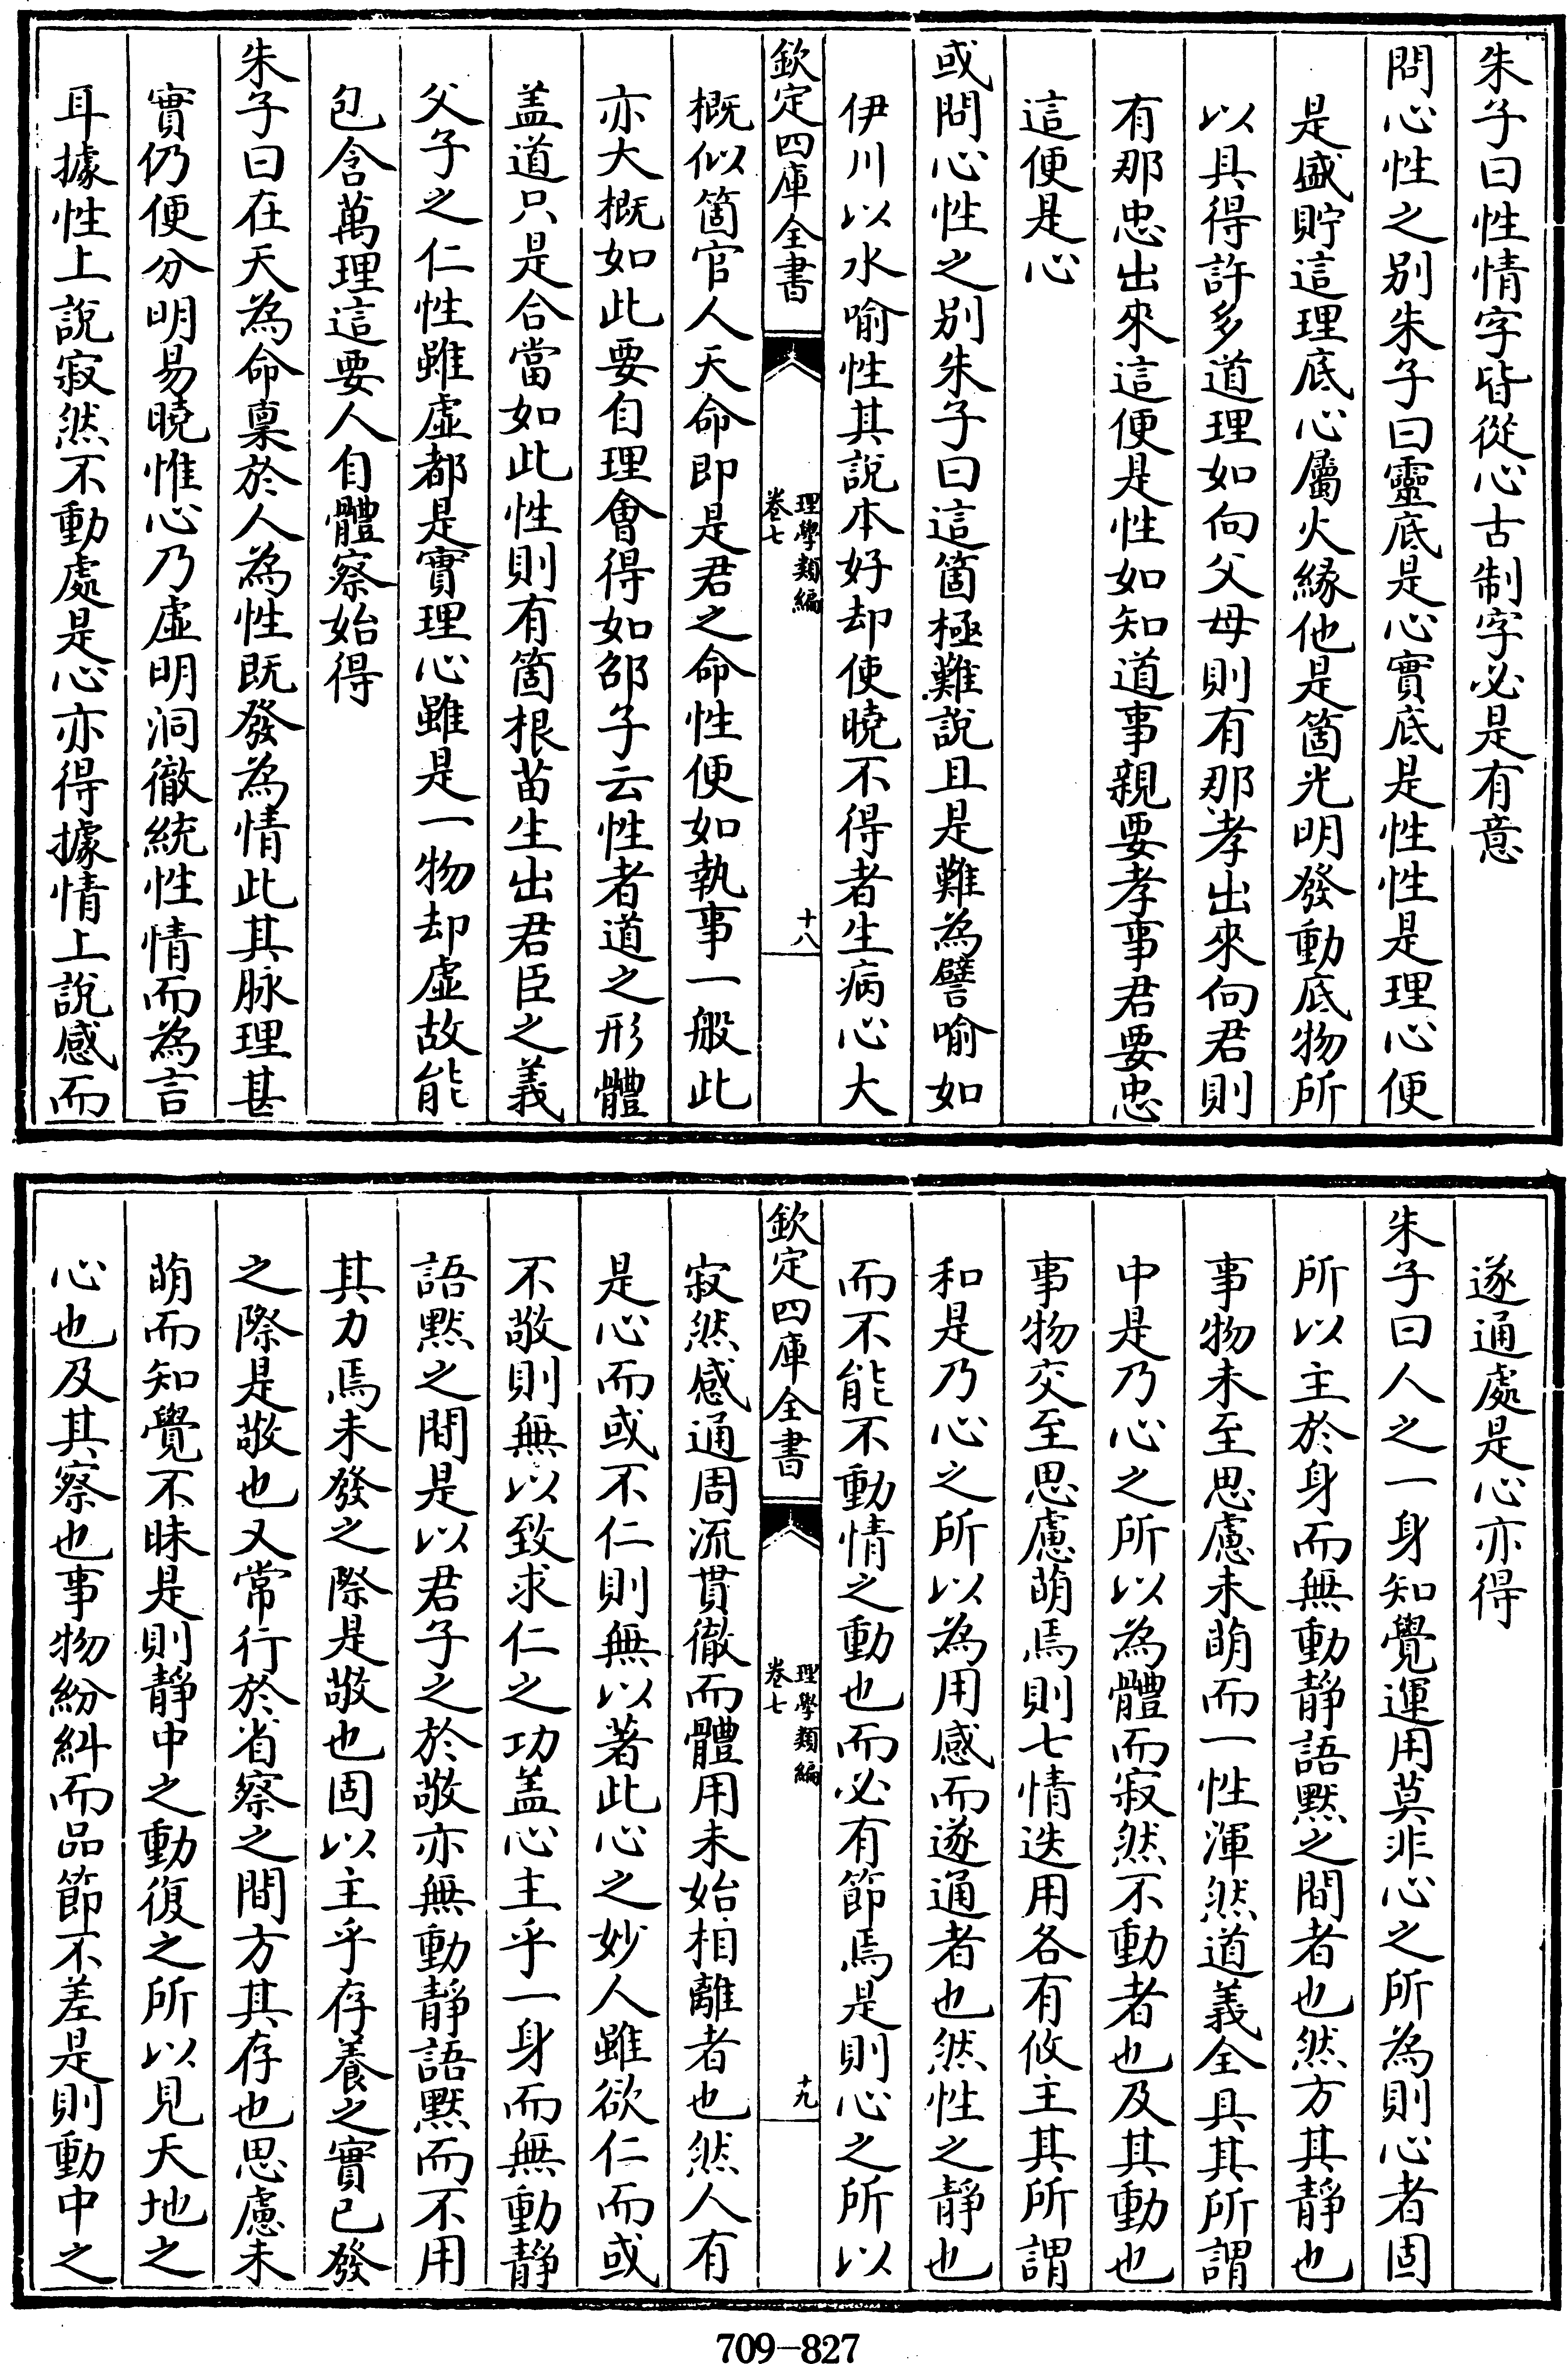 朱子曰性情字皆從心古制字必是有意
問心性之别朱子曰靈底是心實底是性性是理心便
是盛貯這理底心屬火緣他是箇光明發動底物所
以具得許多道理如向父母則有那孝出來向君則
有那忠出來這便是性如知道事親要孝事君要忠
這便是心
或問心性之别朱子曰這箇極難說且是難為譬喻如
伊川以水喻性其說本好却使曉不得者生病心大
欽定四庫全書
理學類編
卷七
十八
概似箇官人天命即是君之命性便如執事一般此
亦大概如此要自理會得如邵子云性者道之形體
盖道只是合當如此性則有箇根苗生出君臣之義
父子之仁性雖虚都是實理心雖是一物却虚故能
包含萬理這要人自體察始得
朱子曰在天為命稟於人為性既發為情此其脉理甚
實仍便分明易曉惟心乃虚明洞徹統性情而為言
耳據性上說寂然不動處是心亦得據情上說感而
遂通處是心亦得
朱子曰人之一身知覺運用莫非心之所為則心者固
所以主於身而無動靜語黙之間者也然方其靜也
事物未至思慮未萌而一性渾然道義全具其所謂
中是乃心之所以為體而寂然不動者也及其動也
事物交至思慮萌焉則七情迭用各有攸主其所謂
和是乃心之所以為用感而遂通者也然性之靜也
而不能不動情之動也而必有節焉是則心之所以
欽定四庫全書
理學類編
卷七
十九
寂然感通周流貫徹而體用未始相離者也然人有
是心而或不仁則無以著此心之妙人雖欲仁而或
不敬則無以致求仁之功盖心主乎一身而無動靜
語黙之間是以君子之於敬亦無動靜語黙而不用
其力焉未發之際是敬也固以主乎存養之實已發
之際是敬也又常行於省察之間方其存也思慮未
萌而知覺不昧是則靜中之動復之所以見天地之
心也及其察也事物紛糾而品節不差是則動中之
709-827